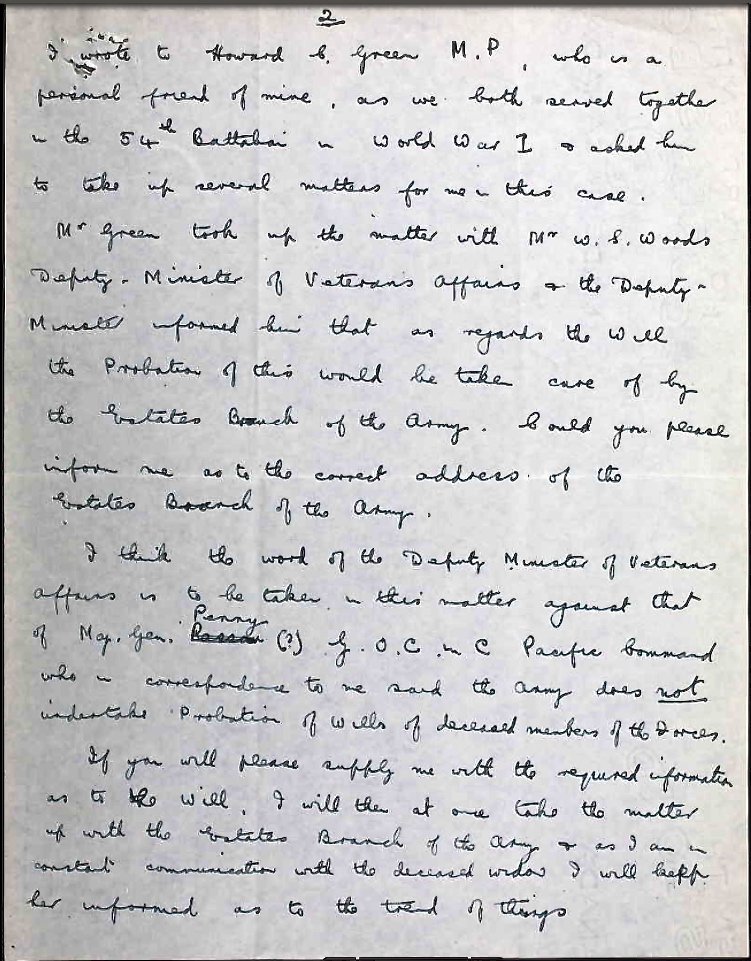 2
I wrote to Howard C. Green M.P, who is a
personal friend of mine, as we both served together
in the 54th Battalion in World War I & asked him
to take up several matters for me in this case.
Mr Green took up the matter with Mr W. S. Woods
Deputy-Minister of Veterans Affairs & the Deputy-
Minister informed him that as regards the Will
the Probation of this would be take care of by
the Estates Branch of the Army. Could you please
inform me as to the correct address of the
Estates Branch of the Army.
I think the word of the Deputy Minister of Veterans
Affairs is to be taken in this matter against that
Penny
of Maj. Gen. (?) G.O.C in C Pacific Command
who in correspondence to me said the Army does not
undertake Probation of Wills of deceased members of the Forces.
If you will please supply me with the required information
as to the Will, I will then at once take the matter
up with the Estates Branch of the Army & as I am in
constant communication with the deceased widow I will keep
her informed as to the trend of things